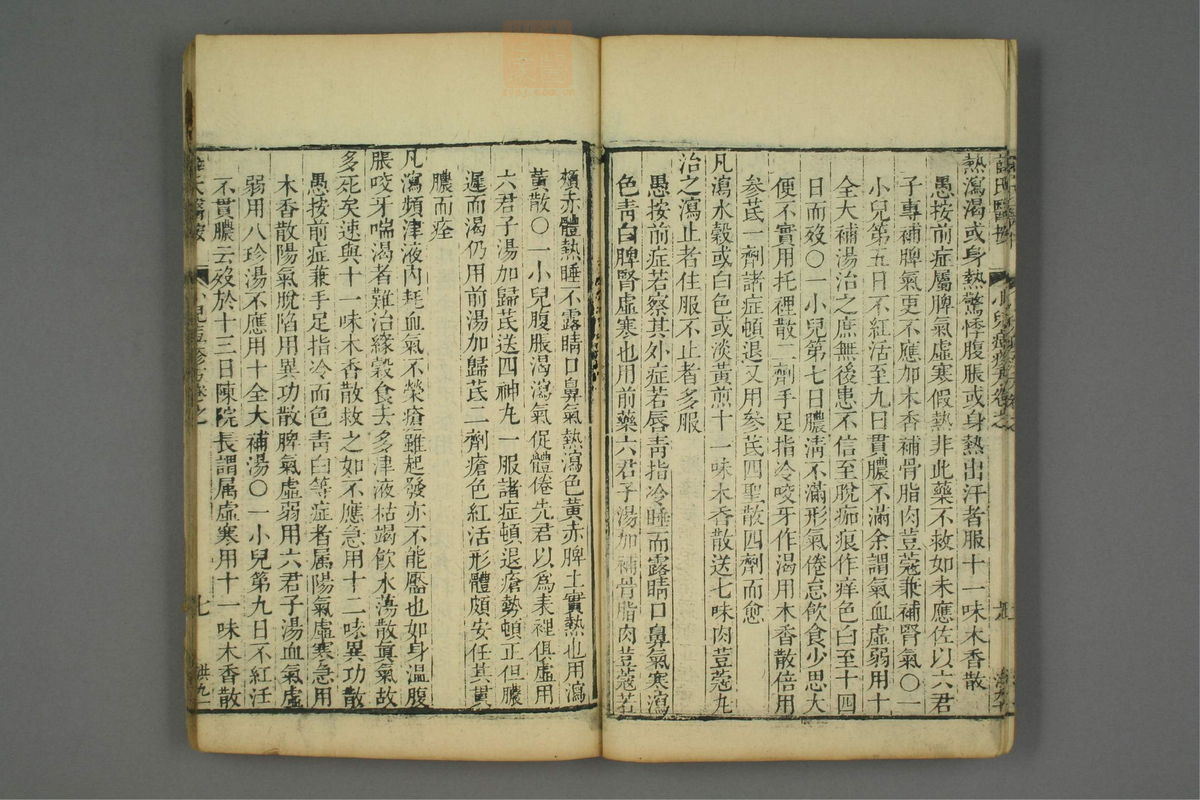 熱瀉渴或身熱驚悸腹脹或身熱出汗者服十一味木香散
愚按前症屬脾氣虛寒假熱非此藥不救如未應佐以六君
子專補脾氣更不應加木香補骨脂肉荳蔻兼補腎氣○一
小兒第五日不紅活至九日貫膿不滿余謂氣血虛弱用十
全大補湯治之庶無後患不信至脫痂痕作痒色白至十四
日而歿○一小兒第七日膿清不滿形氣倦怠飲食少思大
便不實用托裡散二劑手足指冷咬牙作渴用木香散倍用
參芪一劑諸症頓退又用參芪四聖散四劑而愈
凡瀉水穀或白色或淡黃煎十一味木香散送七味肉荳蔻丸
治之瀉止者住服不止者多服
愚按前症若察其外症若唇青指冷睡而露睛口鼻氣寒瀉
色青白脾腎虛寒也用前藥六君子湯加補骨脂肉荳蔻若
頰赤體熱睡不露睛口鼻氣熱瀉色黃赤脾土實熱也用瀉
黃散○一小兒腹脹渴瀉氣促體倦先君以為表裡俱虛用
六君子湯加歸芪送四神丸一服諸症頓退瘡勢頓正但膿
遲而渴仍用前湯加歸芪二劑瘡色紅活形體頗安任其貫
膿而痊
凡瀉頻津液內耗血氣不榮瘡雖起發亦不能靨也如身溫腹
脹咬牙喘渴者難治緣穀食去多津液枯竭飲水蕩散眞氣故
多死矣速與十一味木香散救之如不應急用十二味異功散
愚按前症兼手足指冷而色青白等症者属陽氣虛寒急用
木香散陽氣脫陷用異功散脾氣虛弱用六君子湯血氣虛
弱用八珍湯不應用十全大補湯○一小兒第九日不紅活
不貫膿云歿於十三日陳院長謂属虛寒用十一味木香散
七